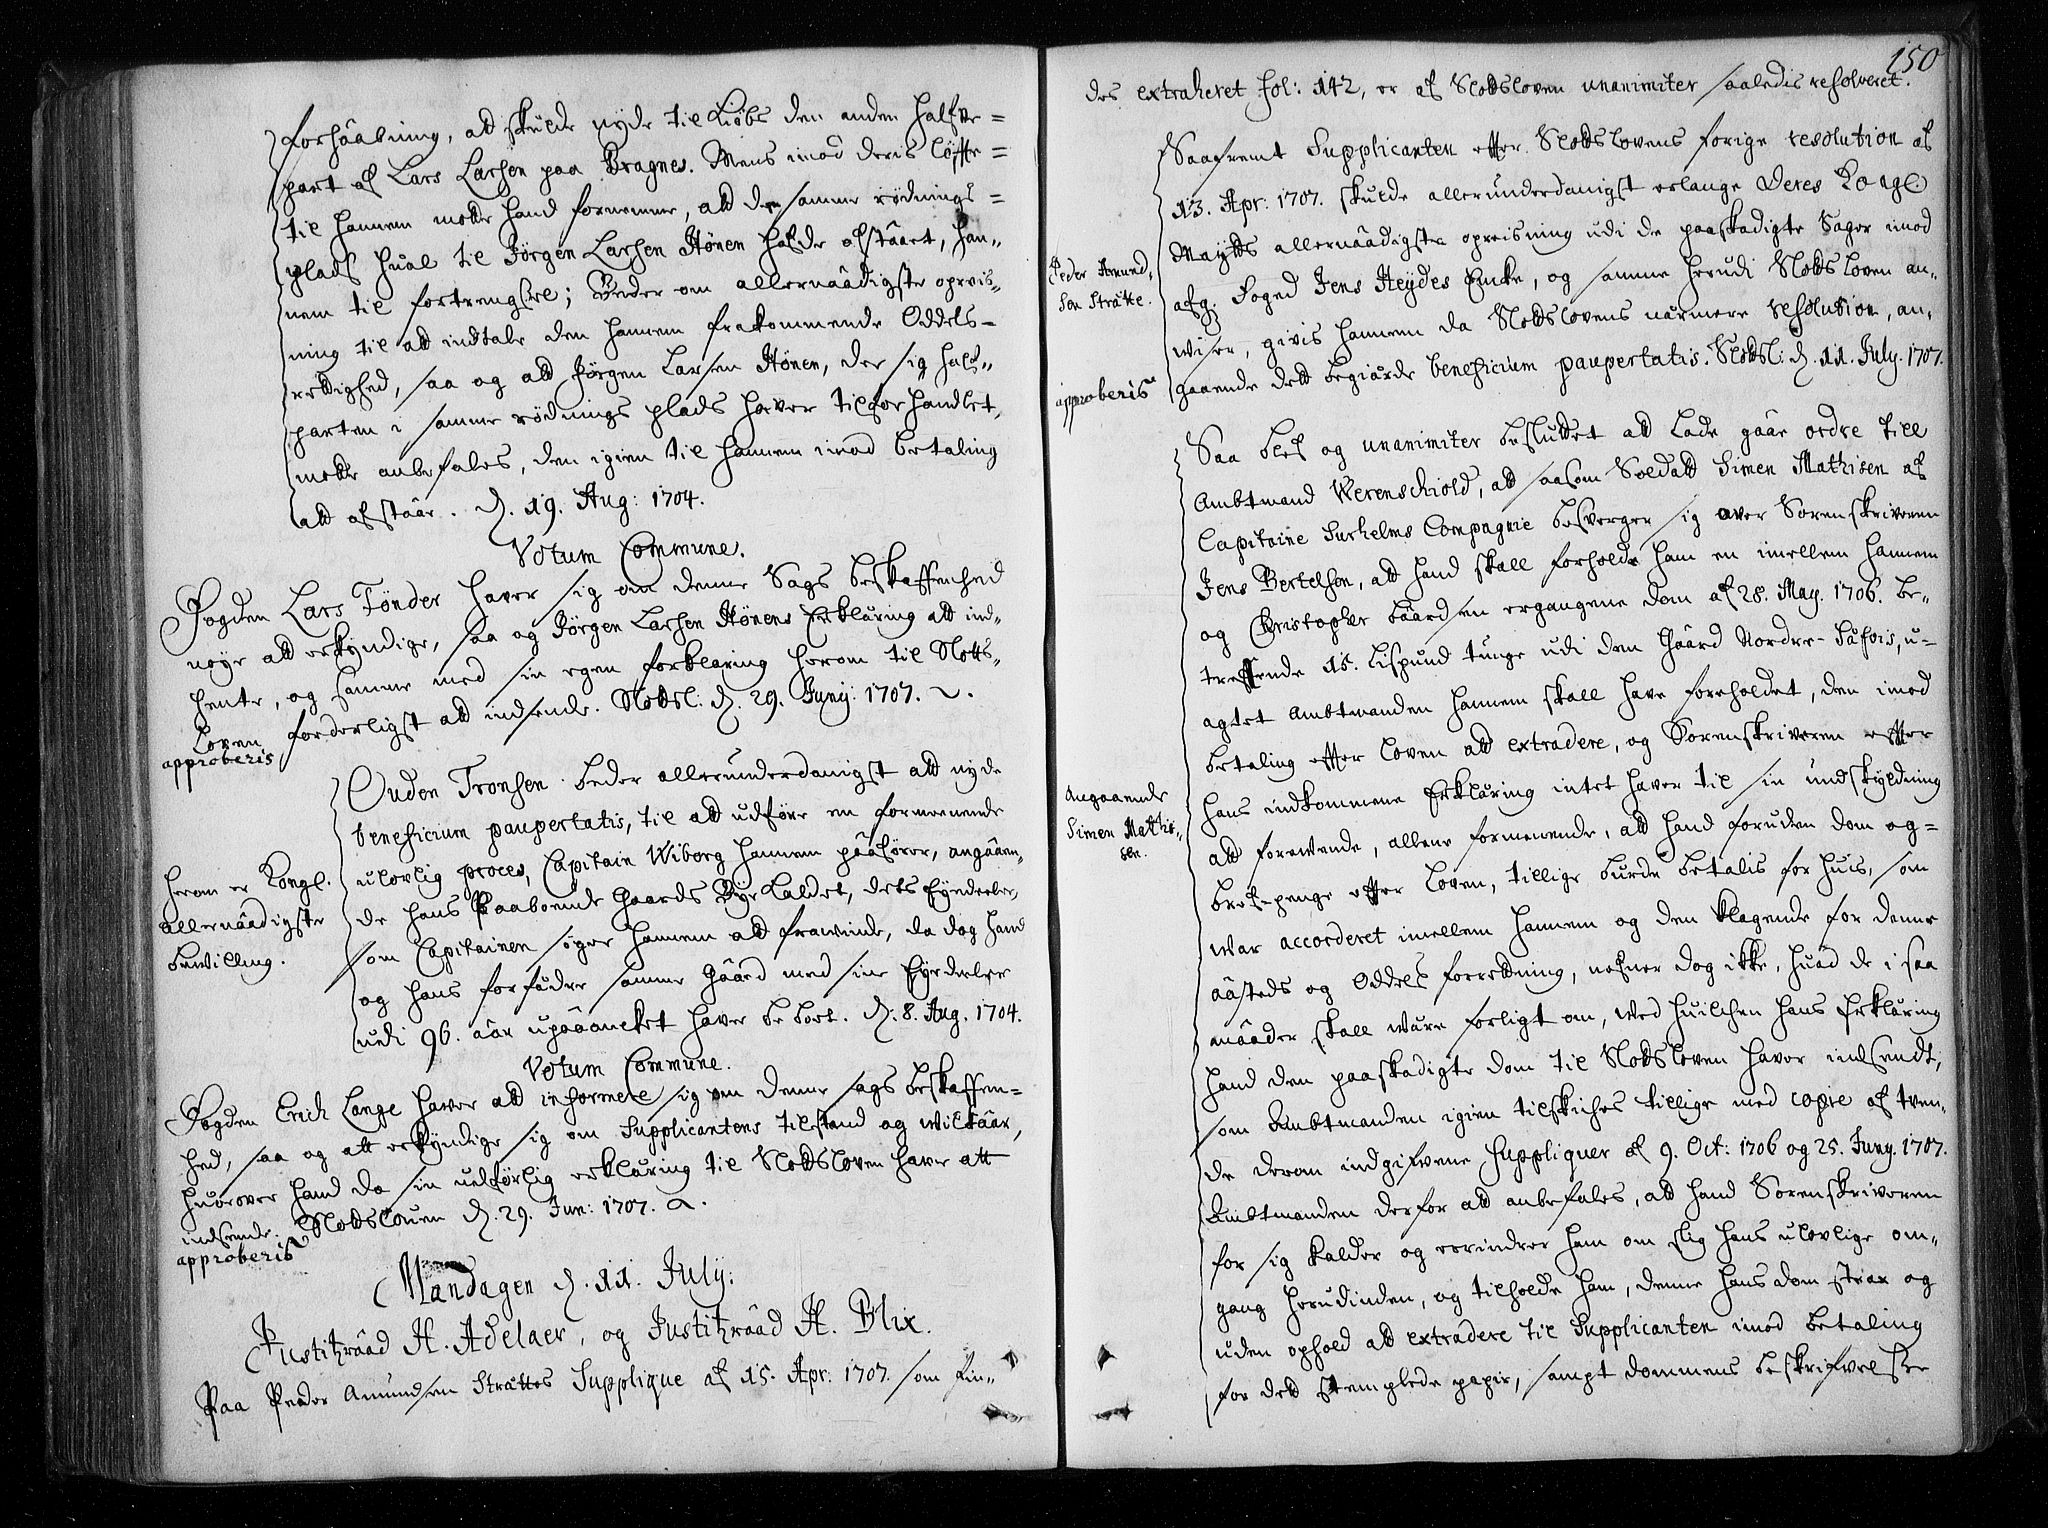 forhaabning, att skulde nyde til Kiøbs den anden halfve=
part af Lars Larsen paa Bragnes. Mens imod deris løffte=
til hannem motte hand fornemme, att den samme rødnings=
plads hual til Jørgen Larsen Hønen hafde afstaaet, han-
nem til fortrengsel; Beder om allernaadigste opreis-
ning til att indtale den hannem frakommende Oddels-
rettighed, saa og att Jørgen Larsen Hønen, der sig half-
parten i samme rødnings plads haver tilforhandlet,
motte anbefales, den igien til hannem imod betaling
att afstaar. D. 19. Aug: 1704.
Votum Commune.
Fogden Lars Tønder haver sig om denne Sags beskaffenhed
nøye att erkyndige, saa og Jørgen Larsen Hønens Erklæring att ind-
hente, og samme med sin egen forklaring herom til Slotts-
Loven forderligst att indsende. Slottsl: d. 29. Juny: 1707.
approberis
Ouden Tronsen beder allerunderdanigst att nyde
beneficium paupertatis, til att udføre en formeenende
ulovlig proces, Capitain Wiborg hannem paafører, angaaen-
de hans Paaboende Gaards Bye kaldet, dets Eyendeeler,
som Capitainen søger hannem att frawinde, da dog hand
og hans forfædre samme Gaard med sine Eyedeeler
udi 96. aar upaaancket haver beboet. D: 8. Aug. 1704.
herom er Kongl.
allernaadigste
bewilling.
Votum Commune.
Fogden Erich Lange haver att informere sig om denne sags beskaffen=
hed, saa og att erkyndige sig om Supplicantens tilstand og wilkaar,
huorover hand da sin udførlig erklæring til Slottsloven haver att
indsende. Slottslouen d. 29. Jun: 1707.
approberis
Mandagen d. 11. July:
Justitzraad H. Adelaer, og Justitzraad H. Blix.
Paa Peder Amundsen Strættes Supplique af 15. Apr: 1707. som fin-
150
des extraheret fol: 142, er af Slottsloven unanimiter saaledis resolveret.
Saafremt Supplicanten efter Slottslovens forige resolution af
13. Apr: 1707. skulde allerunderdanigst erlange Deres Kongl.
Maytts allernaadigste opreisning udi de paaskadigte Sager imod
afg. Foged Jens Heydes Encke, og samme herudi Slottsloven an-
wiser, givis hannem da Slottslovens nærmere resolution, an-
gaaende dett begiærde beneficium paupertatis. Slottsl: d. 11. July. 1707.
Peder Amund-
sen Strætte.
approberis
Saa blef og unanimiter besluttet att lade gaar ordre till
Ambtmand Werenschiold, att saasom Soldatt Simen Mathisen af
Capitaine Surhelms Compagnie besverger sig over Sorenskriveren
Jens Bertelsen, att hand skall forholde ham en imellem hannem
og Christopher Baardsen ergangene dom af 28. May. 1706. be-
treffende 15. Lispund tunge udi den Gaard Nordre-Safvis, u-
agtet Ambtmanden hannem skall have foreholdet, den imod
betaling efter Loven att extradere, og Sorenskriveren efter
hans indkommene Erklæring intet haver til sin undskyldning
att forewende, allene formenende, att hand foruden dom og=
bref-penge efter Loven, tillige burde betalis for huis, som
war accorderet imellem hannem og den klagende for denne
aasteds og Oddels forretning, nefner dog ikke, huad de i saa
maader skall være forligt om, wed huilchen hans Erklæring
hand den paaskadigte dom til Slottsloven haver indsendt,
som Ambtmanden igien tilskiches tillige med copie af tven-
de derom indgifvene Suppliquer af 9. Oct: 1706 og 25. Juny. 1707.
Ambtmanden derfor att anbefales, att hand Sorenskriveren
for sig kalder og erindrer ham om slig hans ulovlige om-
gang herudinden, og tilholde ham, denne hans dom strax og
uden ophold att extradere til Supplicanten imod betaling
for dett stemplede papir, sampt dommens beskrifvelse
Angaaende
Simen Mathi-
sen.